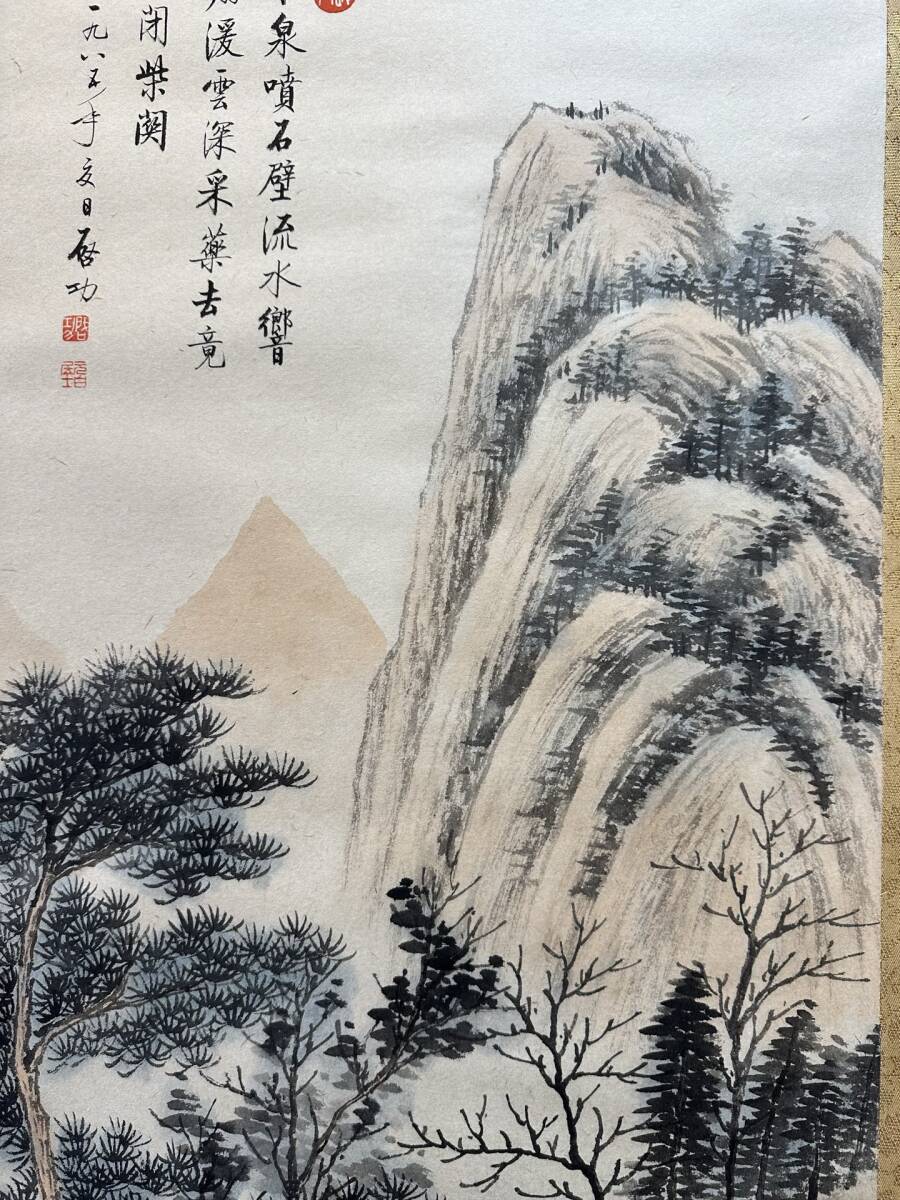 泉噴石壁流水響
湲雲深采藥去竟
閉柴関
一九八五年夏日启功